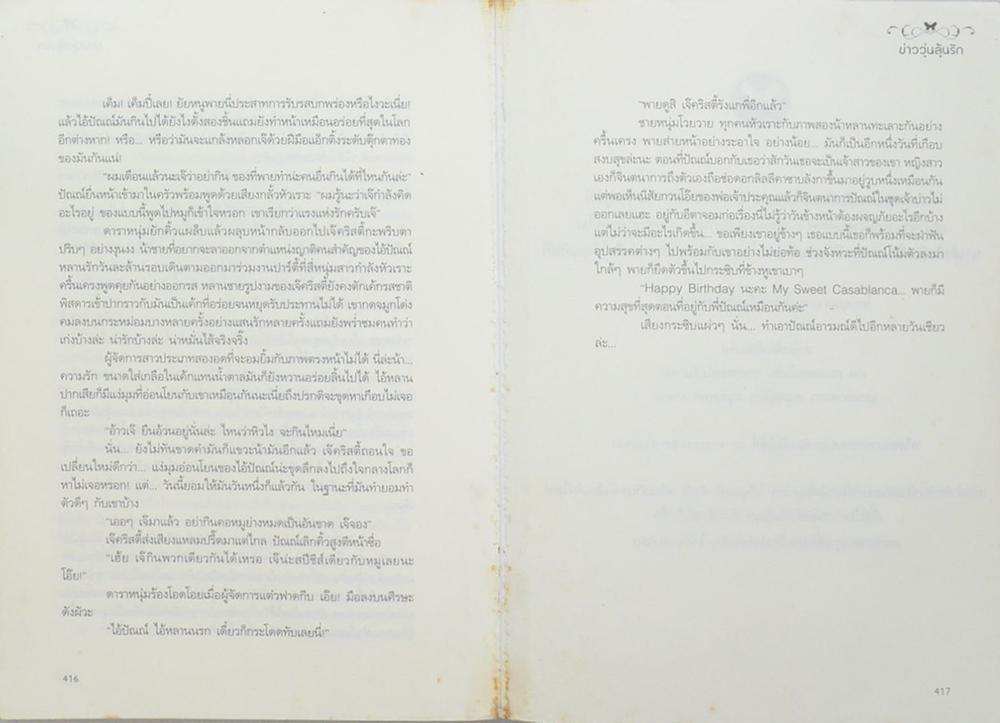 เค็ม! เค็มปี๋เลย! ยัยหนูพายนี่ประสาทการรับรสบกพร่องหรือไงวะเนี่ย!
แล้วไอ้ปัณณ์มันกินไปได้ยังไงตั้งสองชิ้นแถมยังทำหน้าเหมือนอร่อยที่สุดในโลก
อีกต่างหาก! หรือ... หรือว่ามันจะแกล้งหลอกเจ๊ด้วยฝีมือแอ็กติ้งระดับตุ๊กตาทอง
ของมันกันแน่!
“ผมเตือนแล้วนะเจ๊ว่าอย่ากิน ของที่พายทำน่ะคนอื่นกินได้ที่ไหนกันล่ะ”
ปัณณ์ยื่นหน้าเข้ามาในครัวพร้อมพูดด้วยเสียงกลั้วหัวเราะ “ผมรู้นะว่าเจ๊กำลังคิด
อะไรอยู่ ของแบบนี้พูดไปหมูก็เข้าใจหรอก เขาเรียกว่าแรงแห่งรักครับเจ๊”
ดาราหนุ่มยักคิ้วแผล็บแล้วผลุบหน้ากลับออกไปเจ๊คริสตี้กะพริบตา
ปริบๆ อย่างงุนงง น้าชายที่อยากจะลาออกจากตำแหน่งญาติคนสำคัญของไอ้ปัณณ์
หลานรักวันละล้านรอบเดินตามออกมาร่วมงานปาร์ตี้ที่สี่หนุ่มสาวกำลังหัวเราะ
ครื้นเครงพูดคุยกันอย่างออกรส หลานชายรูปงามของเจ๊คริสตี้ยังคงตักเค้กรสชาติ
พิสดารเข้าปากราวกับมันเป็นเค้กที่อร่อยจนหยุดรับประทานไม่ได้ เขากดจมูกโด่ง
คมลงบนกระหม่อมบางหลายครั้งอย่างแสนรักหลายครั้งแถมยังพร่ำชมคนทำว่า
เก่งบ้างล่ะ น่ารักบ้างล่ะ น่าหมั่นไส้จริงจริ๊ง
ผู้จัดการสาวประเภทสองอดที่จะอมยิ้มกับภาพตรงหน้าไม่ได้ นี่ล่ะน้า...
ความรัก ขนาดใส่เกลือในเค้กแทนน้ำตาลมันก็ยังหวานอร่อยลิ้นไปได้ ไอ้หลาน
ปากเสียก็มีแง่มุมที่อ่อนโยนกับเขาเหมือนกันนะเนี่ยถึงปรกติจะขุดหาเกือบไม่เจอ
ก็เถอะ
“อ้าวเจ๊ ยืนอ้วนอยู่นั่นล่ะ ไหนว่าหิวไง จะกินไหมเนี่ย”
นั่น... ยังไม่ทันขาดคำมันก็แขวะน้ามันอีกแล้ว เจ๊คริสตี้ถอนใจ ขอ
เปลี่ยนใหม่ดีกว่า... แง่มุมอ่อนโยนของไอ้ปัณณ์น่ะขุดลึกลงไปถึงใจกลางโลกก็
หาไม่เจอหรอก! แต่... วันนี้ยอมให้มันวันหนึ่งก็แล้วกัน ในฐานะที่มันทำยอมทำ
ตัวดีๆ กับเขาบ้าง
“เออๆ เจ๊มาแล้ว อย่ากินคอหมูย่างหมดเป็นอันขาด เจ๊จอง”
เจ๊คริสตี้ส่งเสียงแหลมปรี๊ดมาแต่ไกล ปัณณ์เลิกคิ้วสูงตีหน้าซื่อ
“เฮ้ย เจ๊กินพวกเดียวกันได้เหรอ เจ๊น่ะสปีชีส์เดียวกับหมูเลยนะ
โอ๊ย!”
ดาราหนุ่มร้องโอดโอยเมื่อผู้จัดการแต๋วฟาดกีบ เอ๊ย! มือลงบนศีรษะ
ดังผัวะ
“ไอ้ปัณณ์ ไอ้หลานนรก เดี๋ยวก็กระโดดทับเลยนี่!”
416
ข่าววุ่นลุ้นรัก
“พายดูสิ เจ๊คริสตี้รังแกพี่อีกแล้ว”
ชายหนุ่มโวยวาย ทุกคนหัวเราะกับภาพสองน้าหลานทะเลาะกันอย่าง
ครื้นเครง พายส่ายหน้าอย่างระอาใจ อย่างน้อย... มันก็เป็นอีกหนึ่งวันที่เกือบ
สงบสุขล่ะนะ ตอนที่ปัณณ์บอกกับเธอว่าสักวันเธอจะเป็นเจ้าสาวของเขา หญิงสาว
เองก็จินตนาการถึงตัวเองถือช่อดอกลิลลีคาซาบลังกาขึ้นมาอยู่วูบหนึ่งเหมือนกัน
แต่พอเห็นนิสัยกวนโอ๊ยของพ่อเจ้าประคุณแล้วก็จินตนาการปัณณ์ในชุดเจ้าบ่าวไม่
ออกเลยแฮะ อยู่กับอีตาจอมก่อเรื่องนี่ไม่รู้ว่าวันข้างหน้าต้องผจญภัยอะไรอีกบ้าง
แต่ไม่ว่าจะมีอะไรเกิดขึ้น... ขอเพียงเขาอยู่ข้างๆ เธอแบบนี้เธอก็พร้อมที่จะฝ่าฟัน
อุปสรรคต่างๆ ไปพร้อมกับเขาอย่างไม่ย่อท้อ ช่วงจังหวะที่ปัณณ์โน้มตัวลงมา
ใกล้ๆ พายก็ยืดตัวขึ้นไปกระซิบที่ข้างหูเขาเบาๆ
“Happy Birthday นะคะ My Sweet Casablanca... พายก็มี
ความสุขที่สุดตอนที่อยู่กับพี่ปัณณ์เหมือนกันค่ะ”
เสียงกระซิบแผ่วๆ นั่น... ทำเอาปัณณ์อารมณ์ดีไปอีกหลายวันเชียว
ล่ะ...
417